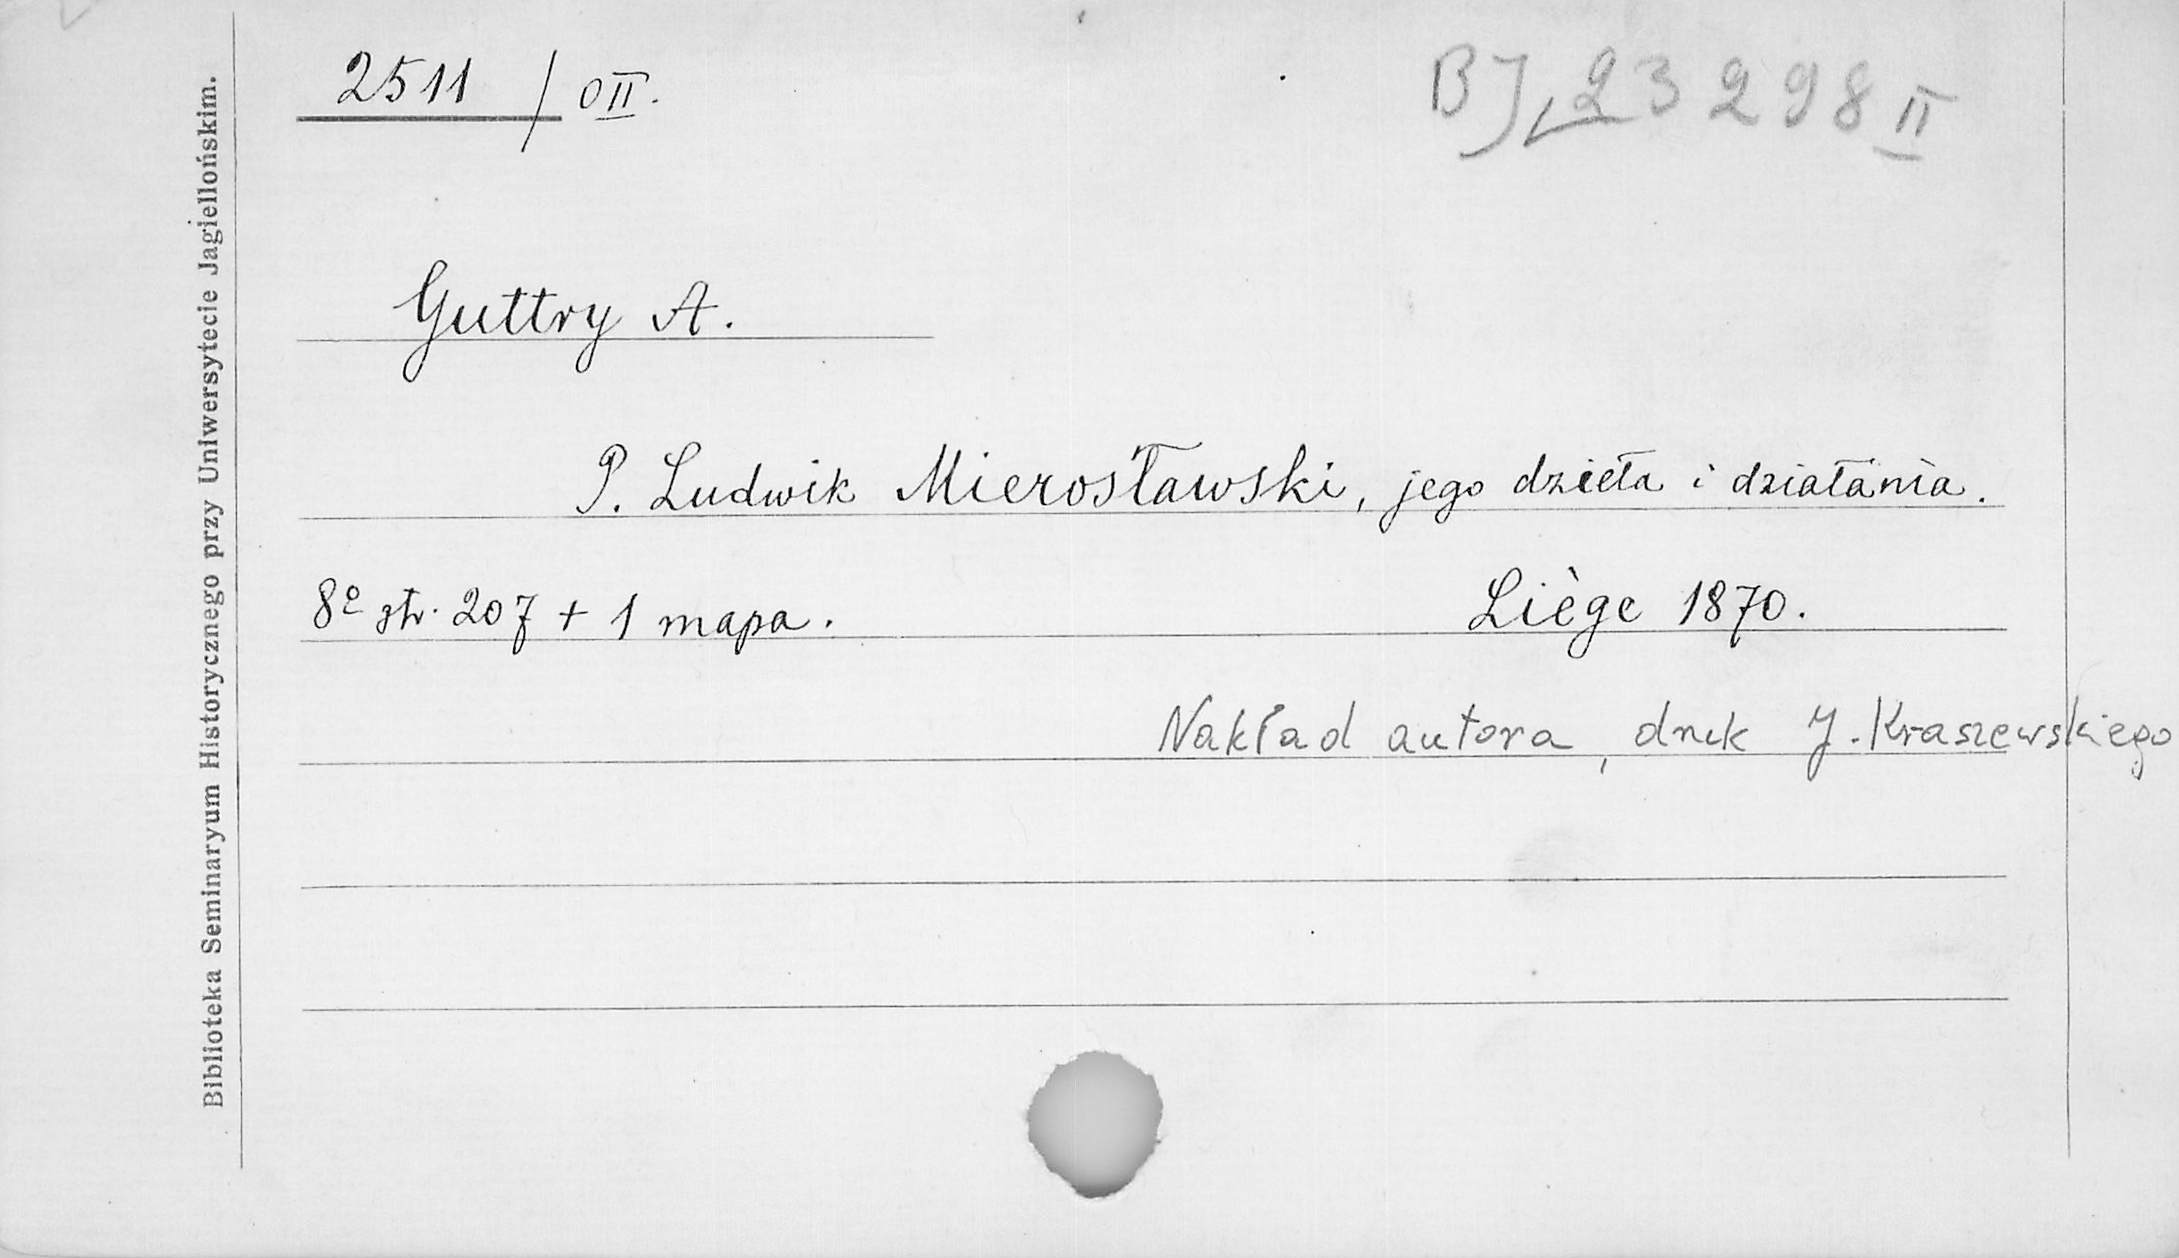 2511 / OII.
BJ, 23298 II
Guttry A.
P. Ludwik Mierosławski, jego dzieła i działania.
8º str. 207 + 1 mapa. Liège 1870.
Nakład autora, druk J. Kraszewskiego
Biblioteka Seminaryum Historycznego przy Uniwersytecie Jagiellońskim.